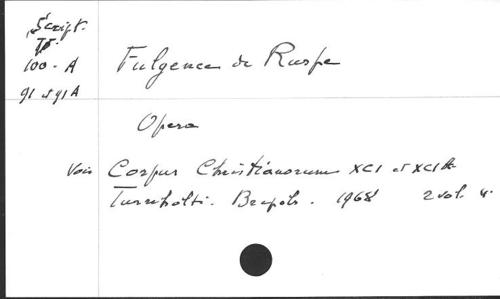 Script.
TT
100 - A
91 et 91 A
Fulgence de Ruspe
Opera
Voir Corpus Christianorum XCI et XCI A
Turnholti. Brepols. 1968 2 vol. 4°